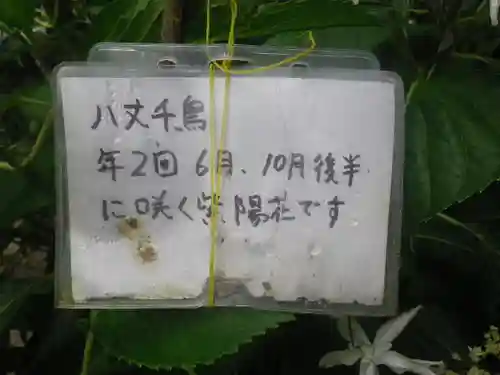 八丈千鳥
年2回 6月、10月後半
に咲く紫陽花です